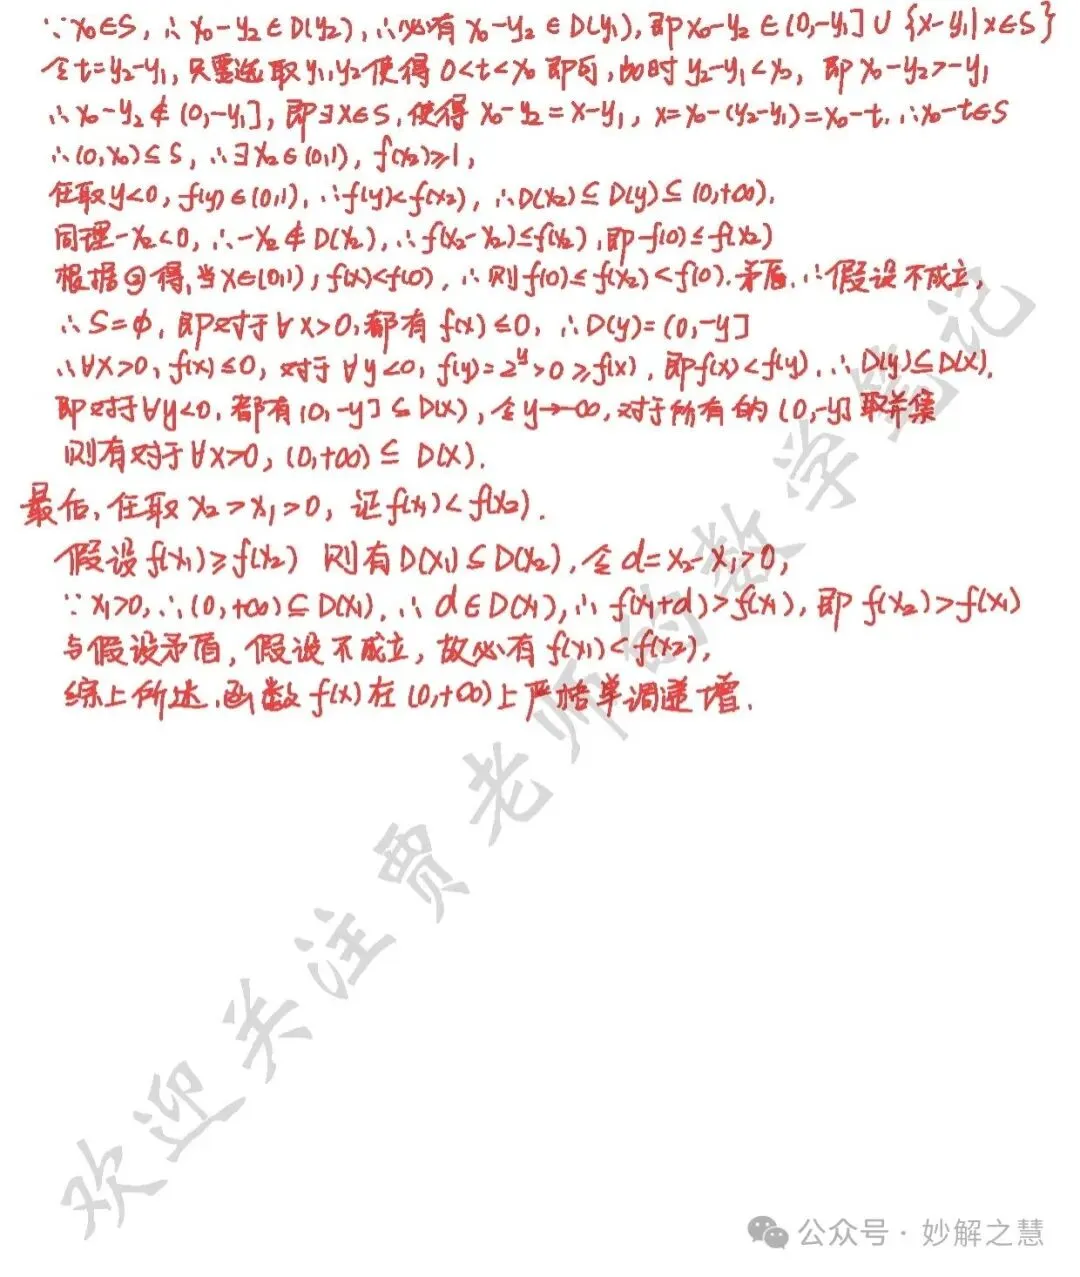 ∵x₀∈S, ∴x₀-y₂∈D(y₂), ∴必有x₀-y₂∈D(y₁), 即x₀-y₂∈(0,-y₁]∪{x-y₁|x∈S}
令t=y₂-y₁, 只需选取y₁,y₂使得0<t<x₀即可, 此时y₂-y₁<x₀, 即x₀-y₂>-y₁
∴x₀-y₂∉(0,-y₁], 即∃x∈S, 使得x₀-y₂=x-y₁, x=x₀-(y₂-y₁)=x₀-t, ∴x₀-t∈S
∴(0,x₀)⊆S, ∴∃x₂∈(0,1), f(x₂)≥1,
任取y<0, f(y)∈(0,1), ∴f(y)<f(x₂), ∴D(x₂)⊆D(y)⊆(0,+∞),
同理-x₂<0, ∴-x₂∉D(x₂), ∴f(x₂-x₂)≤f(x₂), 即f(0)≤f(x₂)
根据④得,当x∈(0,1), f(x)<f(0), ∴则f(0)≤f(x₂)<f(0).矛盾.∴假设不成立,
∴S=∅, 即对于∀x>0,都有f(x)≤0, ∴D(y)=(0,-y]
∴∀x>0, f(x)≤0, 对于∀y<0, f(y)=2^y>0≥f(x), 即f(x)<f(y), ∴D(y)⊆D(x),
即对于∀y<0,都有(0,-y]⊆D(x), 令y→-∞, 对于所有的(0,-y]取并集
则有对于∀x>0, (0,+∞)⊆D(x).
最后, 任取x₂>x₁>0, 证f(x₁)<f(x₂).
假设f(x₁)≥f(x₂) 则有D(x₁)⊆D(x₂), 令d=x₂-x₁>0,
∵x₁>0, ∴(0,+∞)⊆D(x₁), ∴d∈D(x₁), ∴f(x₁+d)>f(x₁), 即f(x₂)>f(x₁)
与假设矛盾, 假设不成立, 故必有f(x₁)<f(x₂),
综上所述, 函数f(x)在(0,+∞)上严格单调递增.
欢迎关注贾老师的数学笔记
公众号·妙解之慧